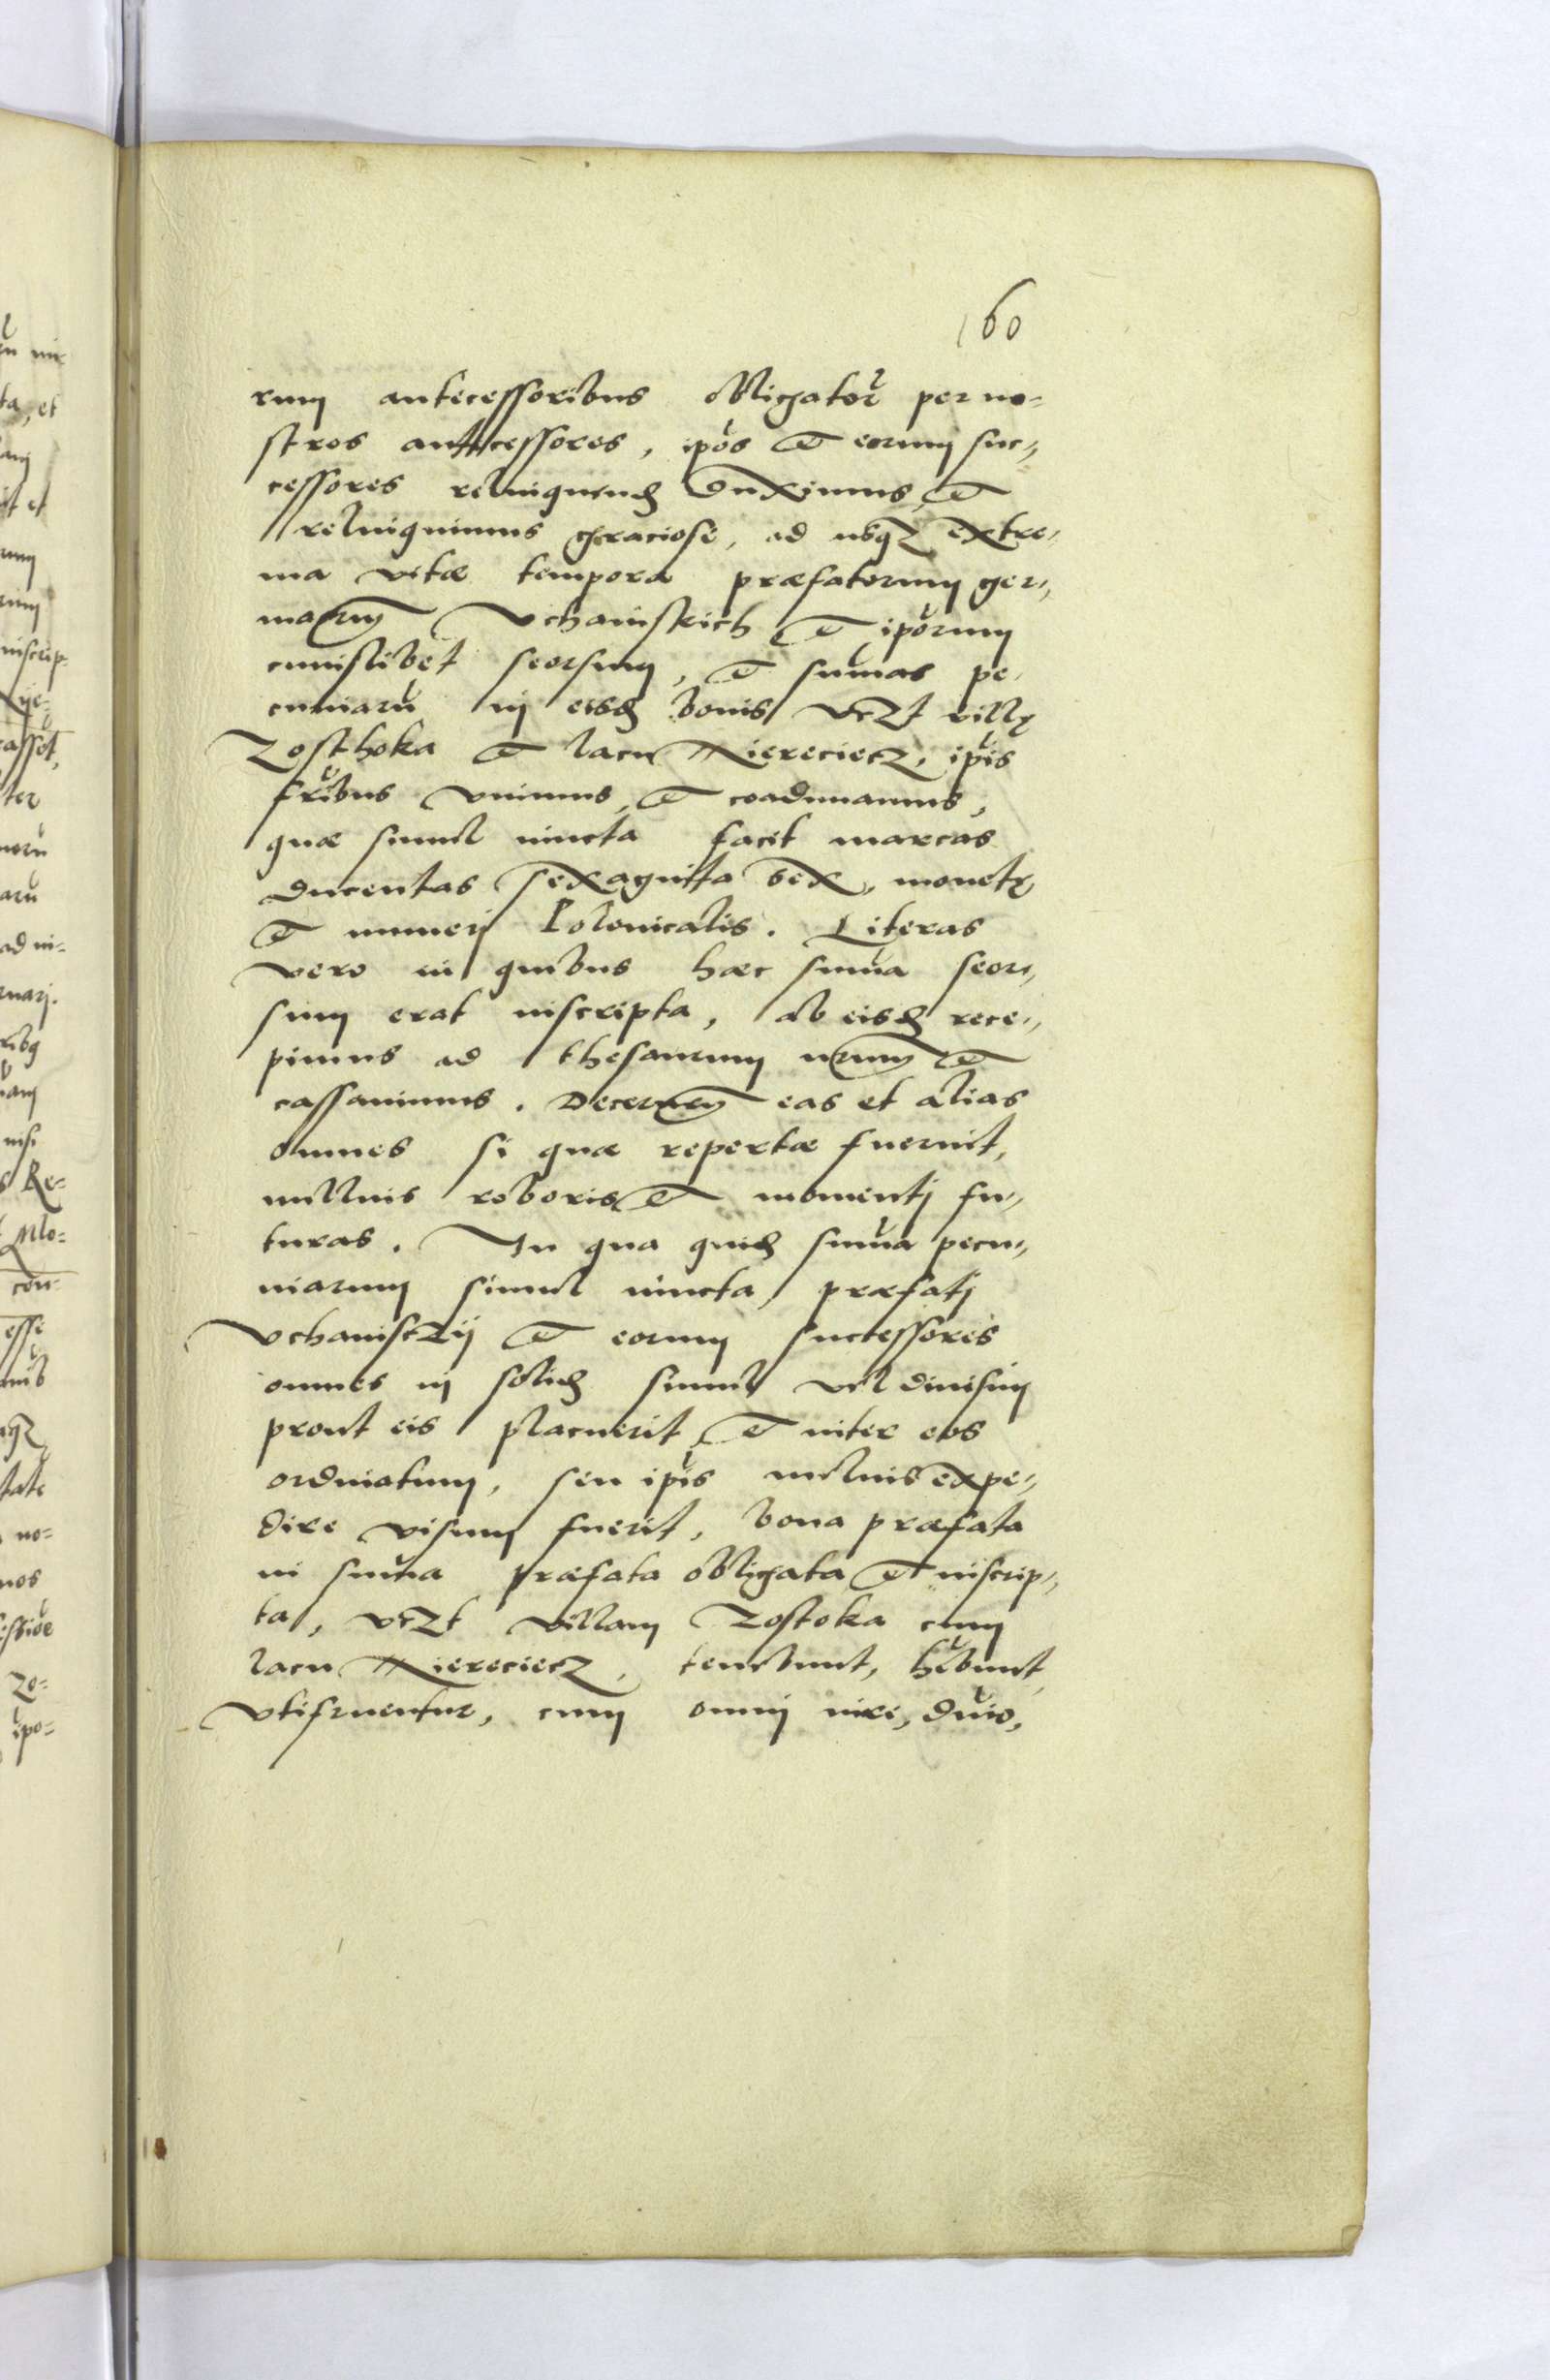 160
rum antecessoribus obligator per no-
stros antecessores, ipos et eorum suc-
cessores relinquend duximus, et
relinquimus graciose, ad usq extre-
ma vitæ tempora præfatorum ger-
manorum Uchaniskich et iporum
cuiuslibet seorsum, et sumas pe-
cuniaru in eisd bonis vczt villę
Zosthoka et lacu Kiereciecz, ipis
fribus unimus, et coadunamus,
quæ simul iuncta facit marcas
ducentas sexaginta sex, monetę
et numeri Polonicalis. Literas
vero in quibus hæc suma seor-
sum erat inscripta, ab eisd rece-
pimus ad thesaurum nrum et
cassauimus. Decernen eas et alias
omnes si quæ repertæ fuerint,
nullius roboris et momentj fu-
turas. In qua quid suma pecu-
niarum simul iuncta, præfatj
Uchanisczij et eorum successores
omnes in solid simul vel diuisim
prout eis placuerit, et inter eos
ordinatum, seu ipis melius expe-
dire visum fuerit, bona præfata
in suma præfata obligata et inscrip-
ta, vczt villam Zostoka cum
lacu Kiereciecz, tenebunt, hebunt,
utifruentur, cum omni iure, dnio,